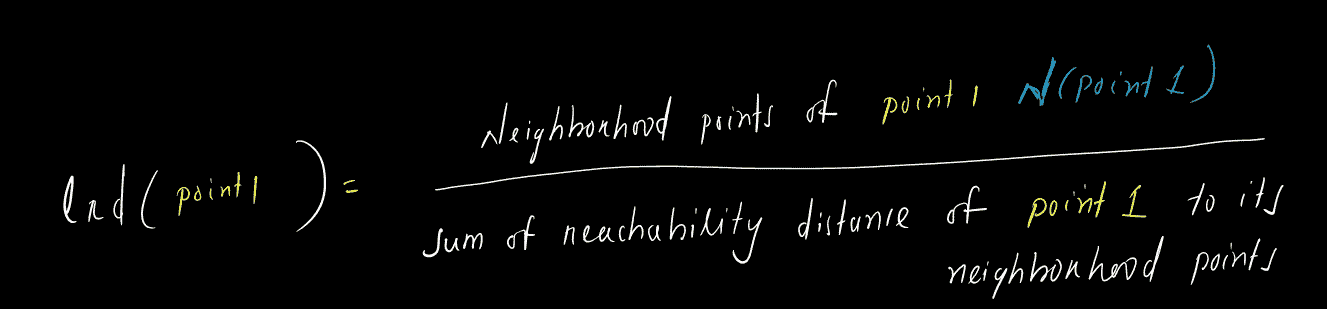 Neighborhood points of point 1 N(point 1)
lrd(point 1) =
sum of reachability distance of point 1 to its
neighborhood points